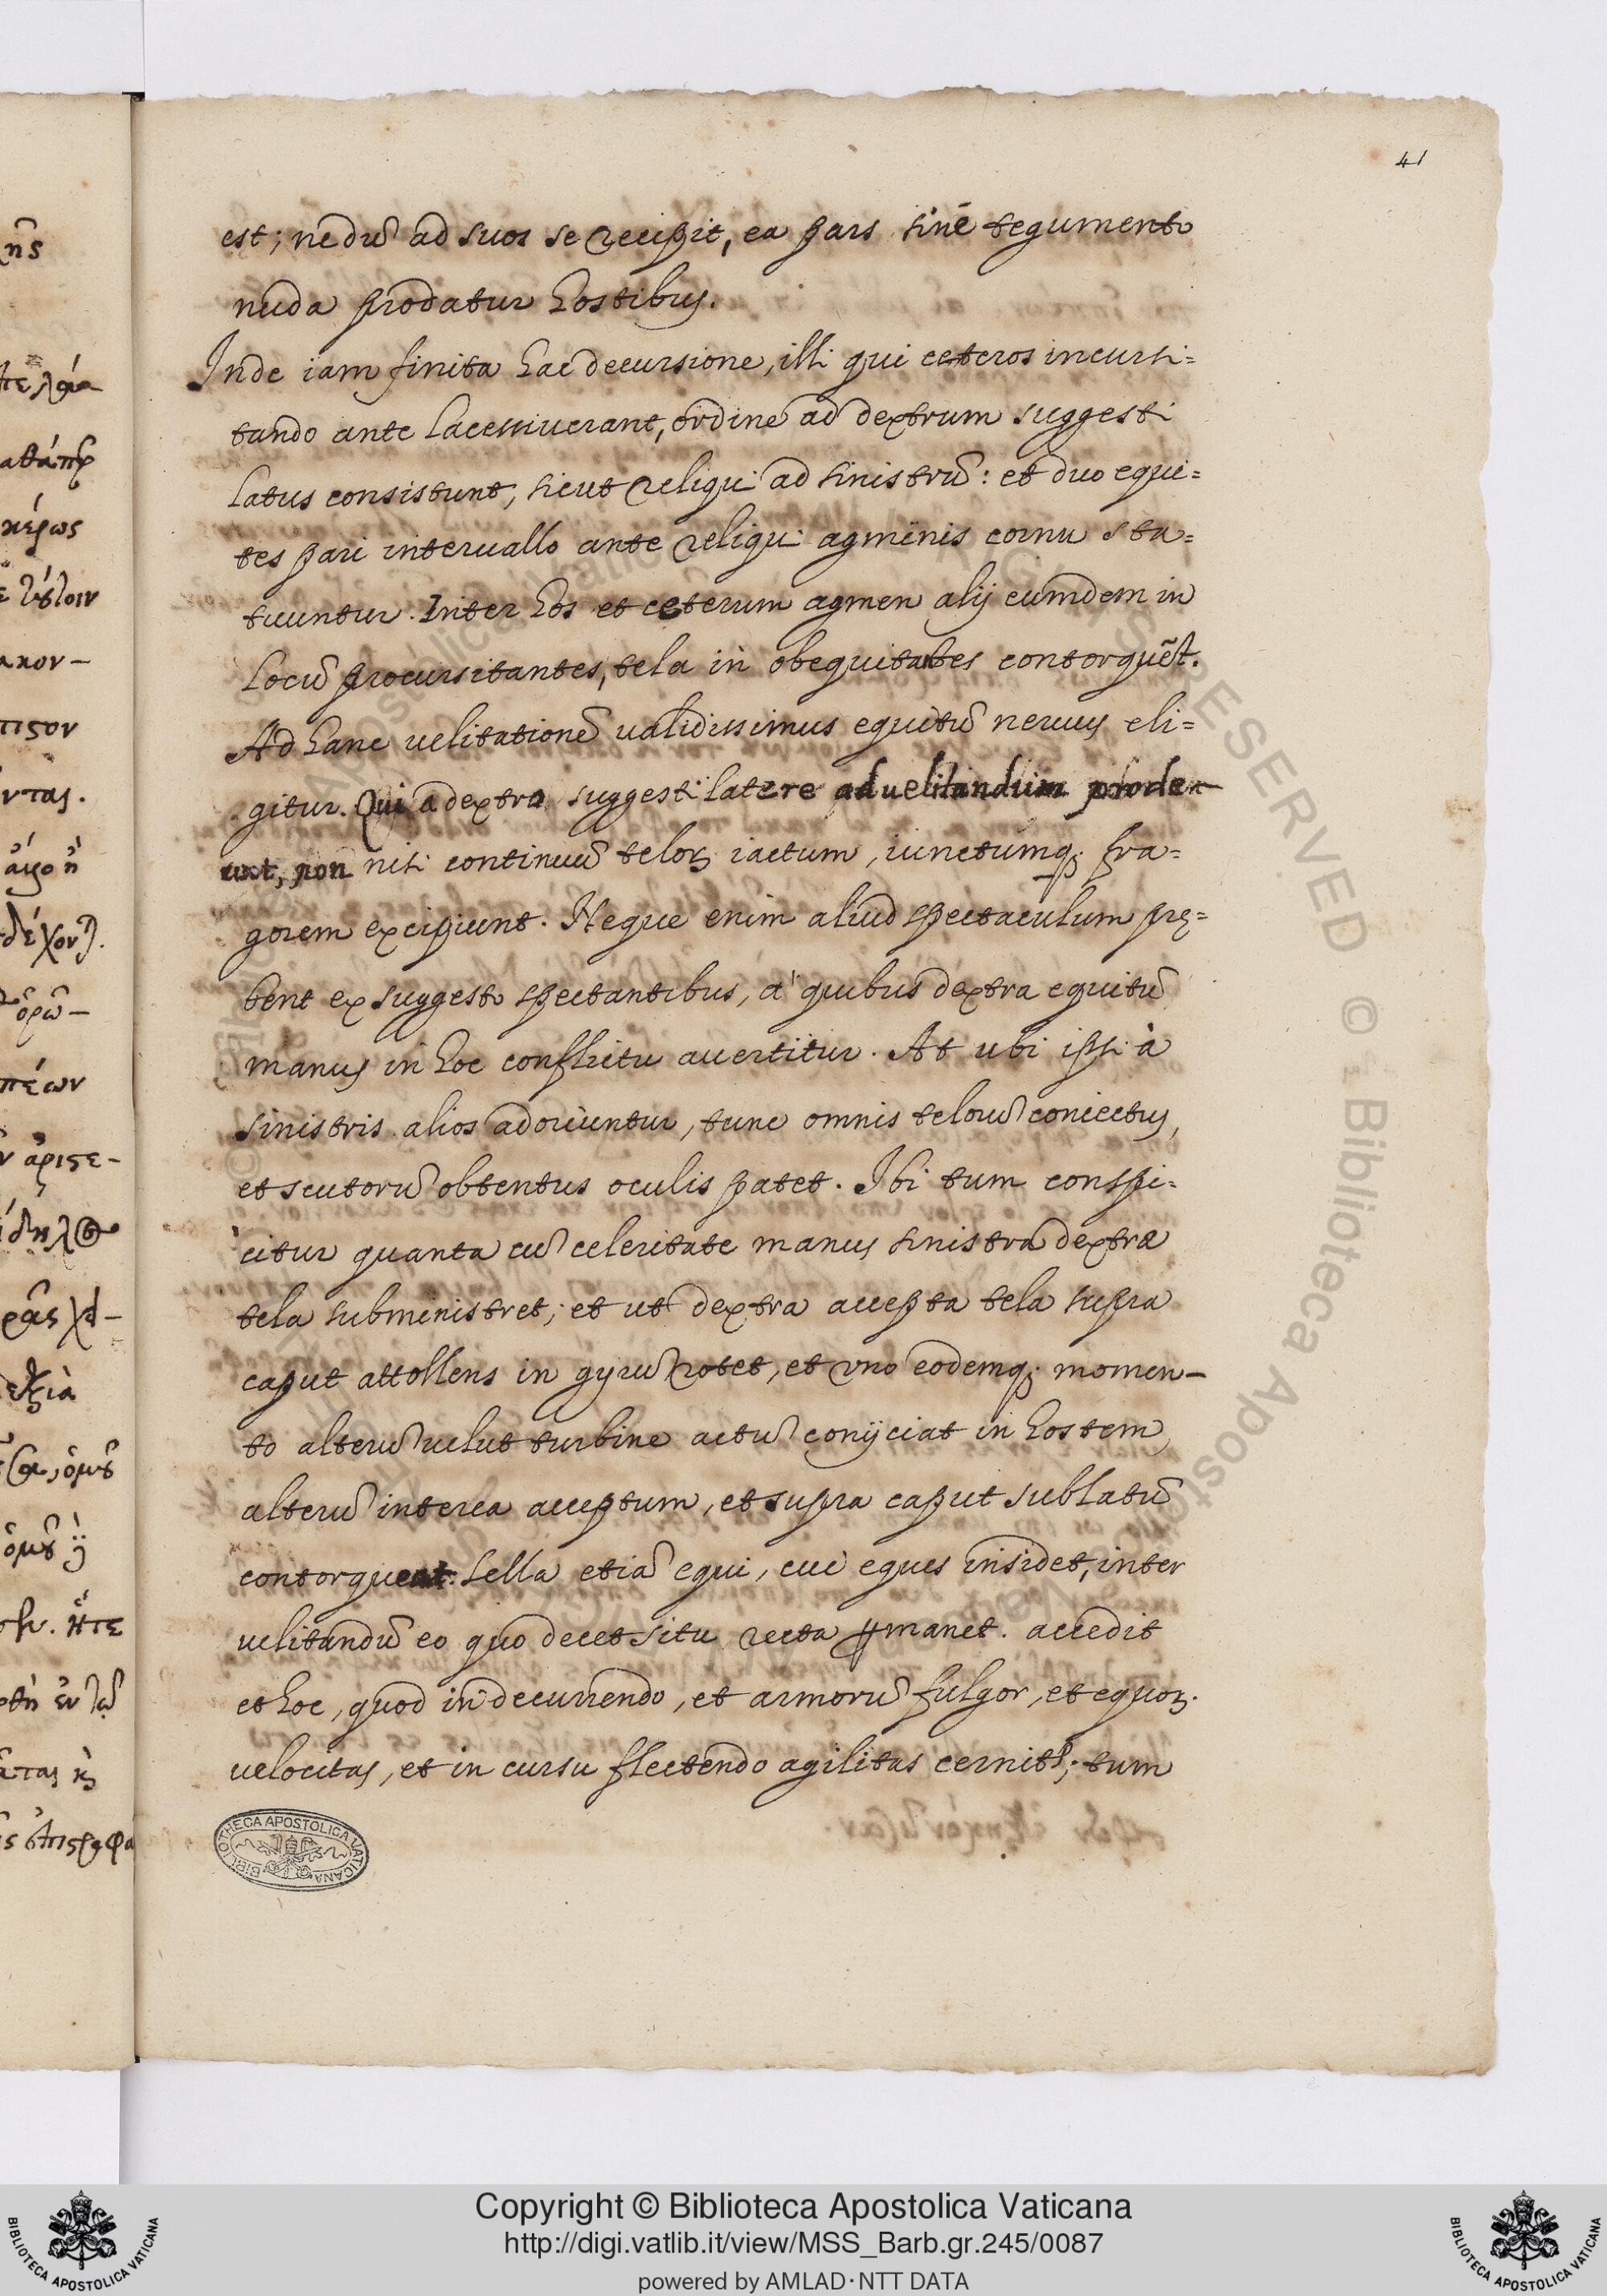 41
est; ne dũ ad suos se recipit, ea pars sine tegumento
nuda prodatur hostibus.
Inde iam finita hac decursione, illi qui ceteros incursi=
tando ante lacessiuerant, ordine ad dextrum suggesti
latus consistunt, sicut reliqui ad sinistrũ: et duo equi=
tes pari interuallo ante reliqui agminis cornu sta=
tuuntur. Inter hos et ceterum agmen alij eumdem in
locũ procursitantes, tela in obequitantes contorquẽt.
Ad hanc uelitationẽ ualidissimus equitũ neruus eli=
gitur. Qui a dextra suggesti latere ad uelitandum prode-
unt, non nisi continuũ teloꝝ iactum, iunctumq; fra=
gorem excipiunt. Neque enim aliud spectaculum prę=
bent ex suggesto spectantibus, à quibus dextra equitũ
manus in hoc conflictu auertitur. At ubi ipsi à
sinistris alios adoriuntur, tunc omnis telorũ coniectus,
et scutorũ obtentus oculis patet. Ibi tum conspi=
citur quanta cũ celeritate manus sinistra dextræ
tela subministret; et ut dextra accepta tela supra
caput attollens in gyrũ rotet, et uno eodemq; momen-
to alterũ uelut turbine actũ conijciat in hostem,
alterũ interea acceptum, et supra caput sublatũ
contorqueat. Sella etiã equi, cui eques insidet, inter
uelitandũ eo quo decet situ recta ꝑmanet. accedit
et hoc, quod in decurrendo, et armorũ fulgor, et equoꝝ
uelocitas, et in cursu flectendo agilitas cernitᷣ; tum
BIBLIOTHECA APOSTOLICA VATICANA
κέρως
ακον-
πέων
Copyright © Biblioteca Apostolica Vaticana
http://digi.vatlib.it/view/MSS_Barb.gr.245/0087
powered by AMLAD·NTT DATA
BIBLIOTECA APOSTOLICA VATICANA
BIBLIOTECA APOSTOLICA VATICANA